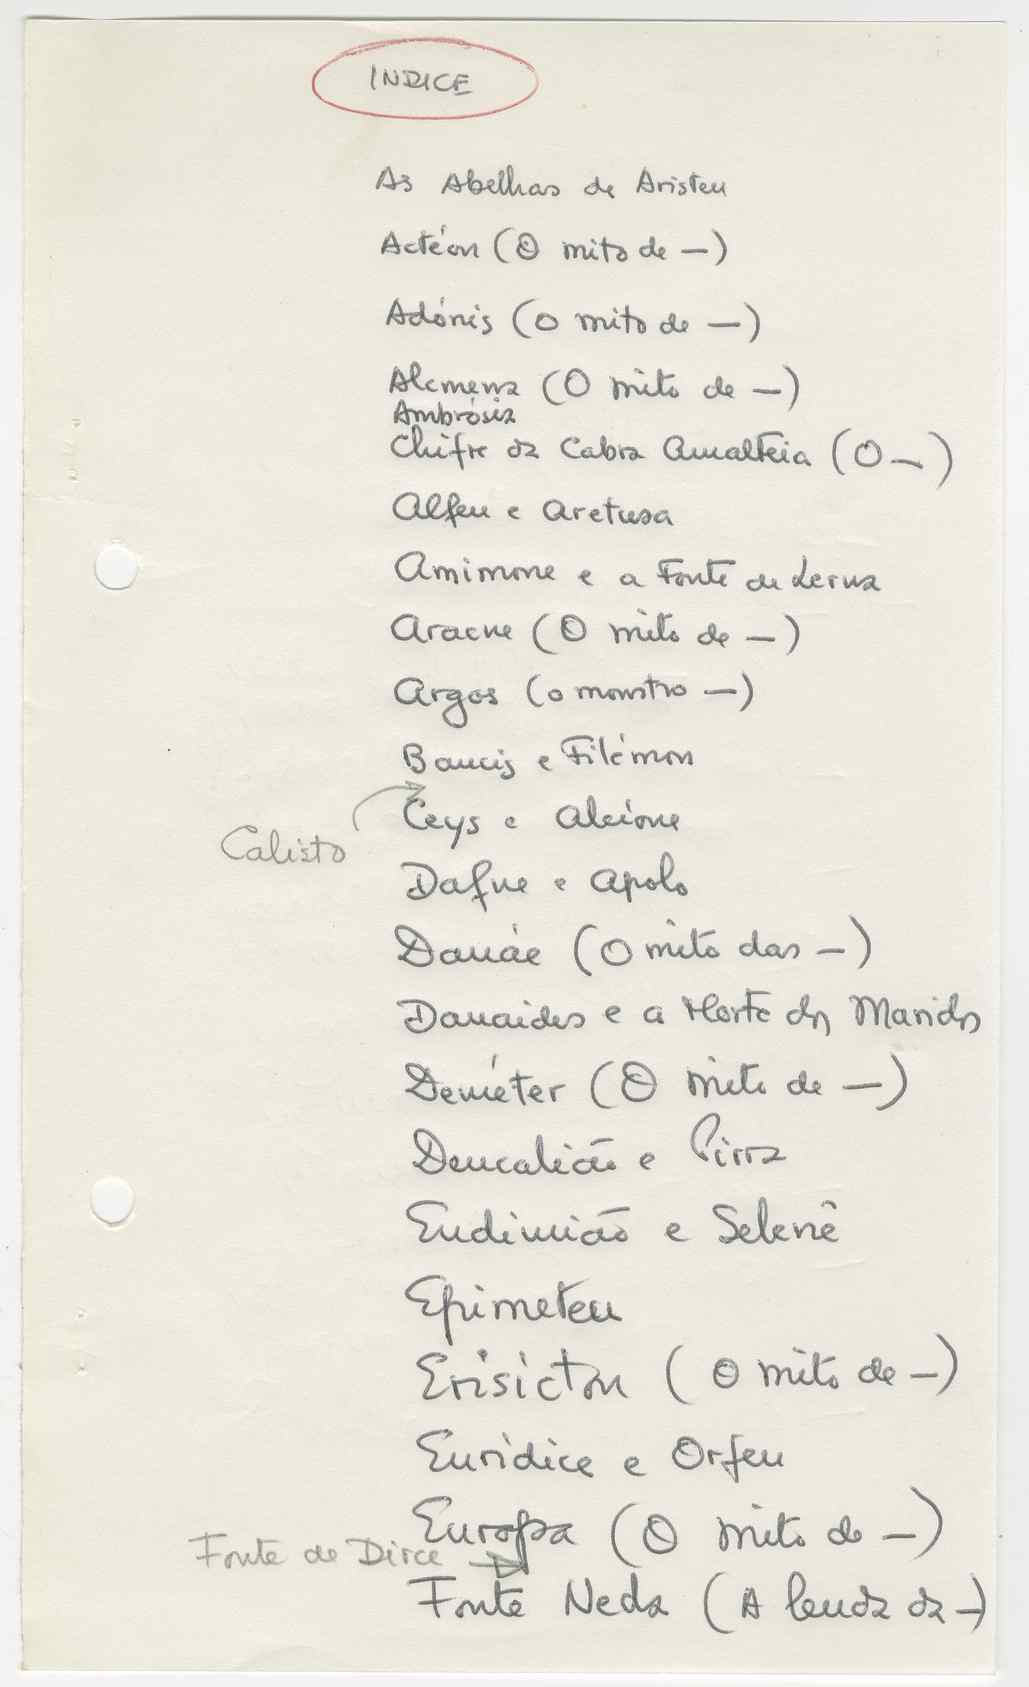 INDICE
As Abelhas de Aristeu
Actéon (O mito de —)
Adónis (O mito de —)
Alcmena (O mito de —)
Ambrósia
Chifre da Cabra Amalteia (O —)
Alfeu e Aretusa
Amimone e a Fonte de Lerna
Aracne (O mito de —)
Argos (o monstro —)
Baucis e Filémon
Calisto
Ceys e Alcione
Dafne e Apolo
Danáe (O mito das —)
Danaides e a Morte dos Maridos
Deméter (O mito de —)
Deucalião e Pirra
Endimião e Selenê
Epimeteu
Erisicton (O mito de —)
Euridice e Orfeu
Europa (O mito de —)
Fonte de Dirce
Fonte Neda (A lenda da —)